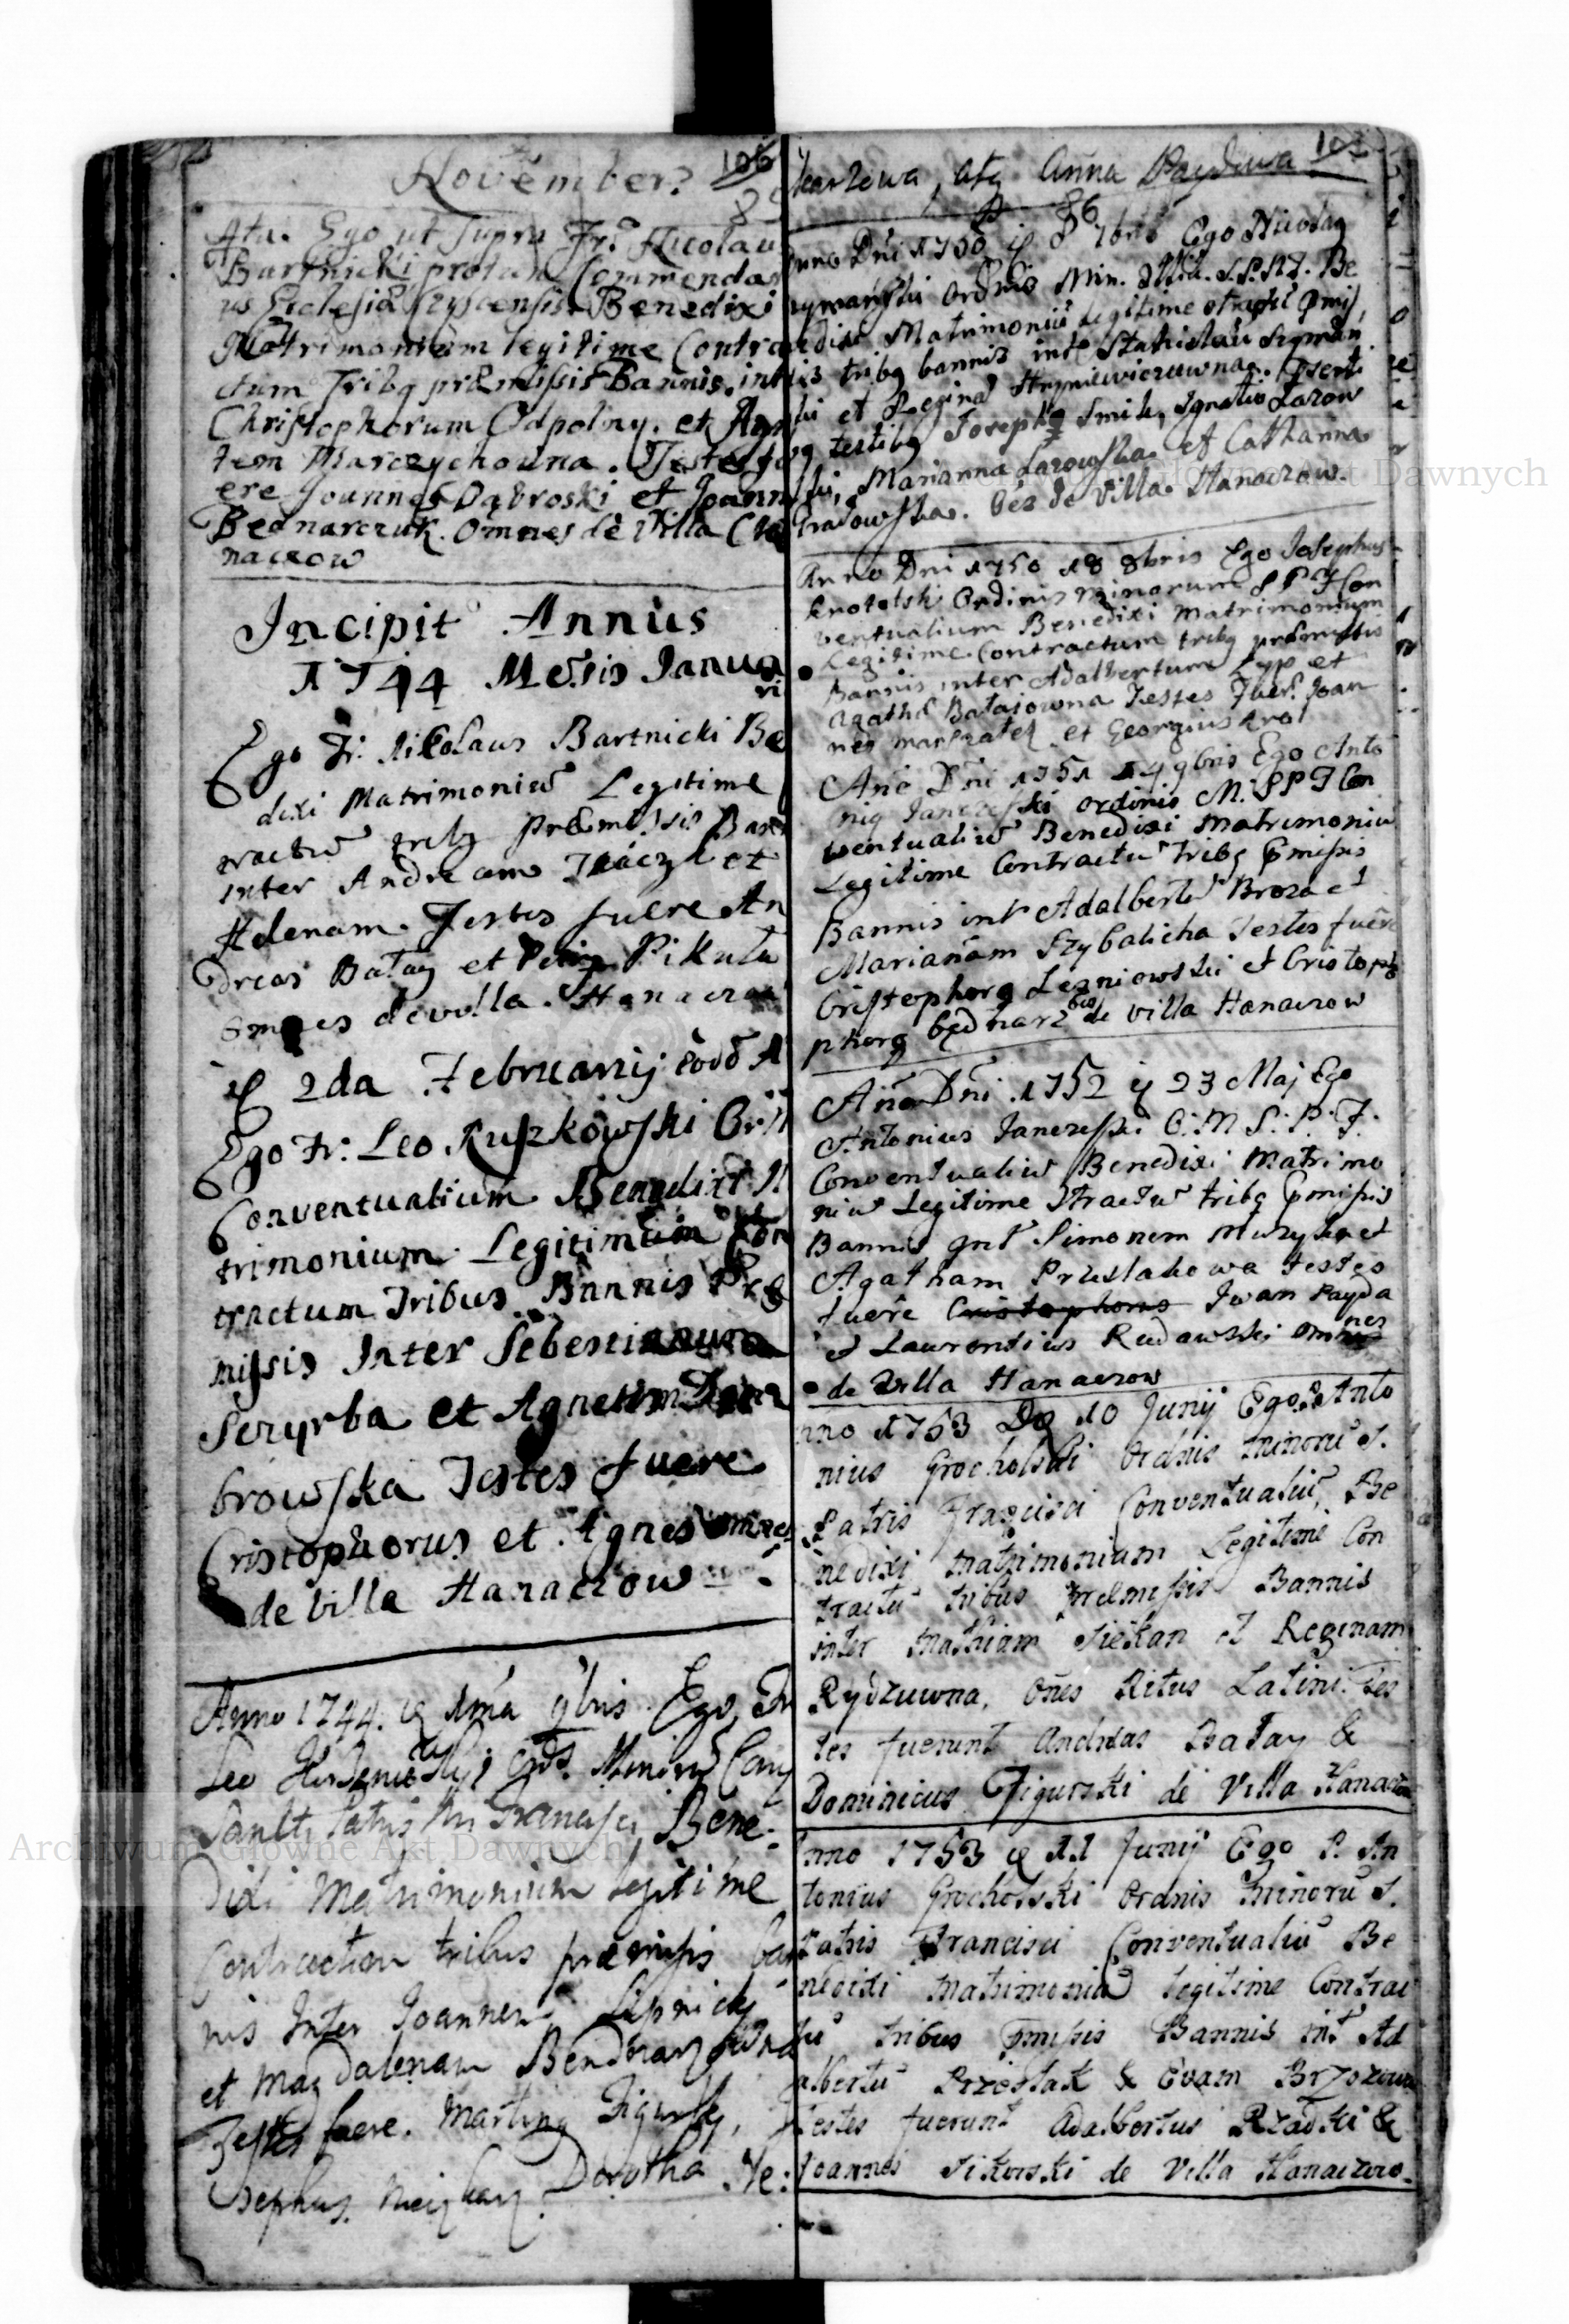 November
106
Ata. Ego ut supra Fr. Nicolau
Bartnicki protunc Commendar
us Eclesiæ Benedixi
Matrimonium legitime Contra
ctum Tribq præmissis Bannis. int
Christophorum Odpolny. et Agn
tem Marczychowna. Testes fu
ere Joannes Dąbroski et Joann
Bednarczuk. Omnes de Villa Cha
naczow
Incipit Annus
1744 Mensis Janua
ri
Ego Fr. Nikolaus Bartnicki Be
dixi Matrimoniũ Legitime
tractũ tribq præmissis Bann
inter Andream Tkaczyk et
Helenam. Testes fuere An
dreas Batag et Pikuła
omnes de villa. Hanaczow
2da Februarij eod A
Ego Fr: Leo Ruszkowski Ord
Conventualium Benedixi M
trimonium Legitimum Con
tractum Tribus Bannis Præ
missis Inter Sebestianum
Sczyrba et Agnetem Dąm
browska Testes fuere
Cristophorus et Agnes omnes
de villa Hanaczow
Anno 1744. 1ma 9bris Ego Fr
Leo Ord. Minorũ Conv
Sancti Patris Nri Francisci Bene:
Dixi Matrimonium legitime
Contractum tribus præmissis ban
nis Inter Joannem Lipnicki
et Magdalenam
Testes fuere. Martinq Figurski, J
osephus. Dorotha Ne:
107
atq Anna Paydowa
86
Anno Dni 1750 8 7bris Ego Nicolaq
Ordnis Min. S.P.N.F. Be
nedixi Matrimoniũ legitime Ctractũ Pmis
sis tribq bannis intr Stanislaũ Szymań
ski et Reginã Hryniewiczuwna. Psenti
bq testibq Josephq Smik, Ignatio Lazow
ski, Marianna Lazowska et Catharina
Gradowska. Oes de Villa Hanaczow.
Anno Dni 1750 18 8bris Ego Josephus
Krotolski Ordinis minorum S P F Con
ventualium Benedixi Matrimonium
Legitime Contractum tribq præmissis
Bannis inter Adalbertum Zyp et
Agathã Bataiowna Testes fuer. Joan
nes et Georgius Krol
Año Dñi 1751 14 9bris Ego Anto
niq Janczeski ordinis M. S P F Con
ventualiũ Benedixi Matrimoniũ
Legitime Contractũ Tribq Pmissis
Bannis intr Adalbertũ Broza et
Mariañam Szybalicha Testes fuere
Cristophorq Lezniowski et Cristop
phorq Bednarz oes de villa Hanaczow
Año Dñi 1752 23 Maj Ego
Antonius Janczeski O: M S. P. F.
Conventualiũ Benedixi Matrimo
niũ Legitime Ctractũ tribq Pmissis
Bannis Intr Simonem Muzyka et
Agatham Przeslakowa Testes
fuere Cristophorus Iwan Payda
et Laurentius Rudawski omnes
de Villa Hanaczow
Anno 1753 Die 10 Junij Ego P. Anto
nius Grocholski Ordnis Minorũ S.
Patris Francisci Conventualiũ Be
nedixi Matrimonium Legitime Con
tractũ tribus Præmissis Bannis
inter Mathiam Siekan et Reginam
Rydzuwna, Oñes Ritus Latini. Tes
tes fuerunt Andreas Batay &
Dominicus Figurski de Villa Hanaczow
Anno 1753 11 Junij Ego P. An
tonius Grocholski Ordnis Minorũ S.
Patris Francisci Conventualiũ Be
nedixi Matrimoniũ legitime Contrac
tũ tribus Pmissis Bannis intr Ad
albertũ Przeslak & Evam Brzozowa
Testes fuerunt Adalbertus Rzadki &
Joannes Sikorski de Villa Hanaczow.
Archiwum Główne Akt Dawnych
Archiwum Główne Akt Dawnych